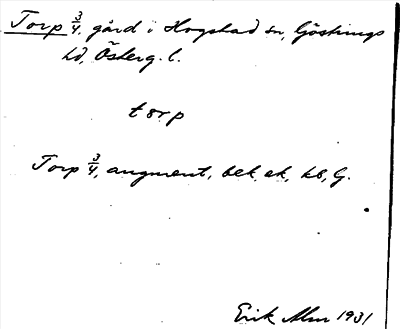 Torp 3/4, gård i Hogstad sn, Göstrings
hd, Österg. l.
torp
Torp 3/4, augment, bek. ek, kb, G.
Erik Alm 1931